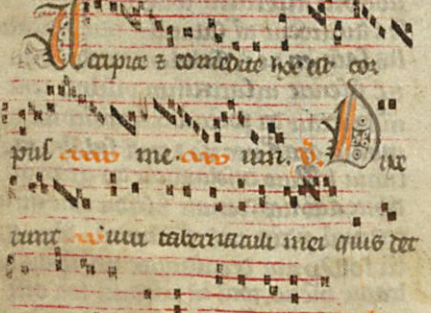 Accipite ⁊ comedite hoc est cor
pus me um. V. Dixe
runt viri tabernaculi mei quis det